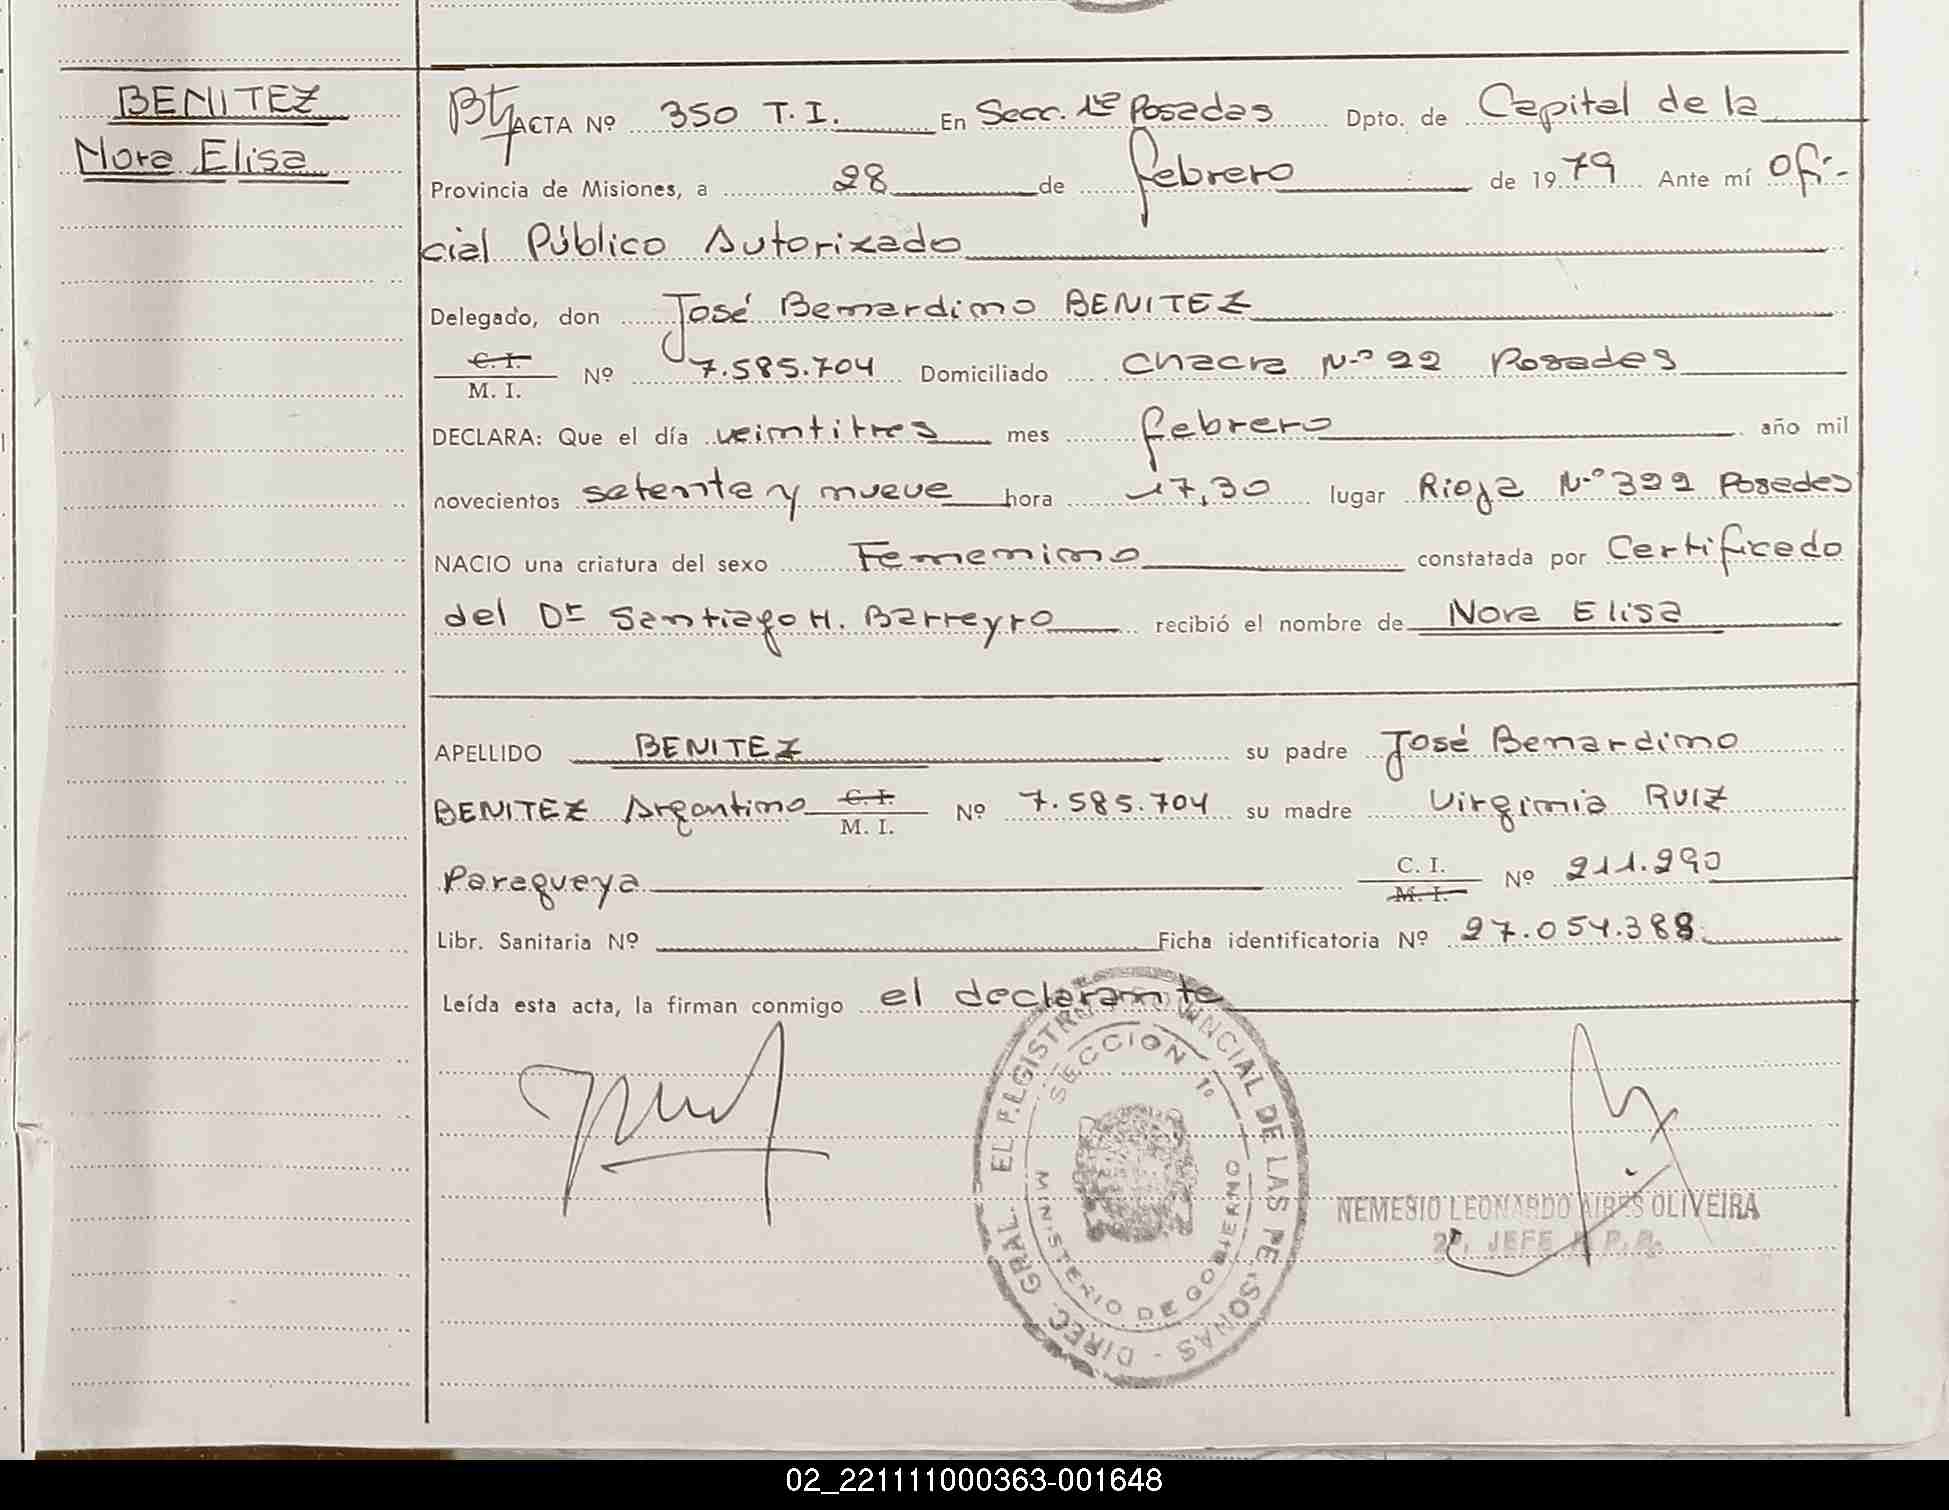 BENITEZ
Nora Elisa
ACTA Nº 350 T.I. En Secc. 1ª Posadas Dpto. de Capital de la
Provincia de Misiones, a 28 de febrero de 1979 Ante mí Ofi-
cial Público Autorizado
Delegado, don José Bernardino BENITEZ
C. I.
M. I. Nº 7.585.704 Domiciliado Chacra Nº 22 Posadas
DECLARA: Que el día veintitres mes febrero año mil
novecientos setenta y nueve hora 17,30 lugar Rioja Nº 322 Posadas
NACIO una criatura del sexo Femenino constatada por Certificado
del Dr Santiago H. Barreyro recibió el nombre de Nora Elisa
APELLIDO BENITEZ su padre José Benardino
BENITEZ Argentino C. I. M. I. Nº 7.585.704 su madre Virginia RUIZ
Paraguaya C. I. M. I. Nº 211.290
Libr. Sanitaria Nº Ficha identificatoria Nº 27.054.388
Leída esta acta, la firman conmigo el declarante
DIREC. GRAL. EL REGISTRO PROVINCIAL DE LAS PERSONAS
SECCION 1º
MINISTERIO DE GOBIERNO
NEMESIO LEONARDO AIRES OLIVEIRA
2º JEFE R.P.P.
02_221111000363-001648